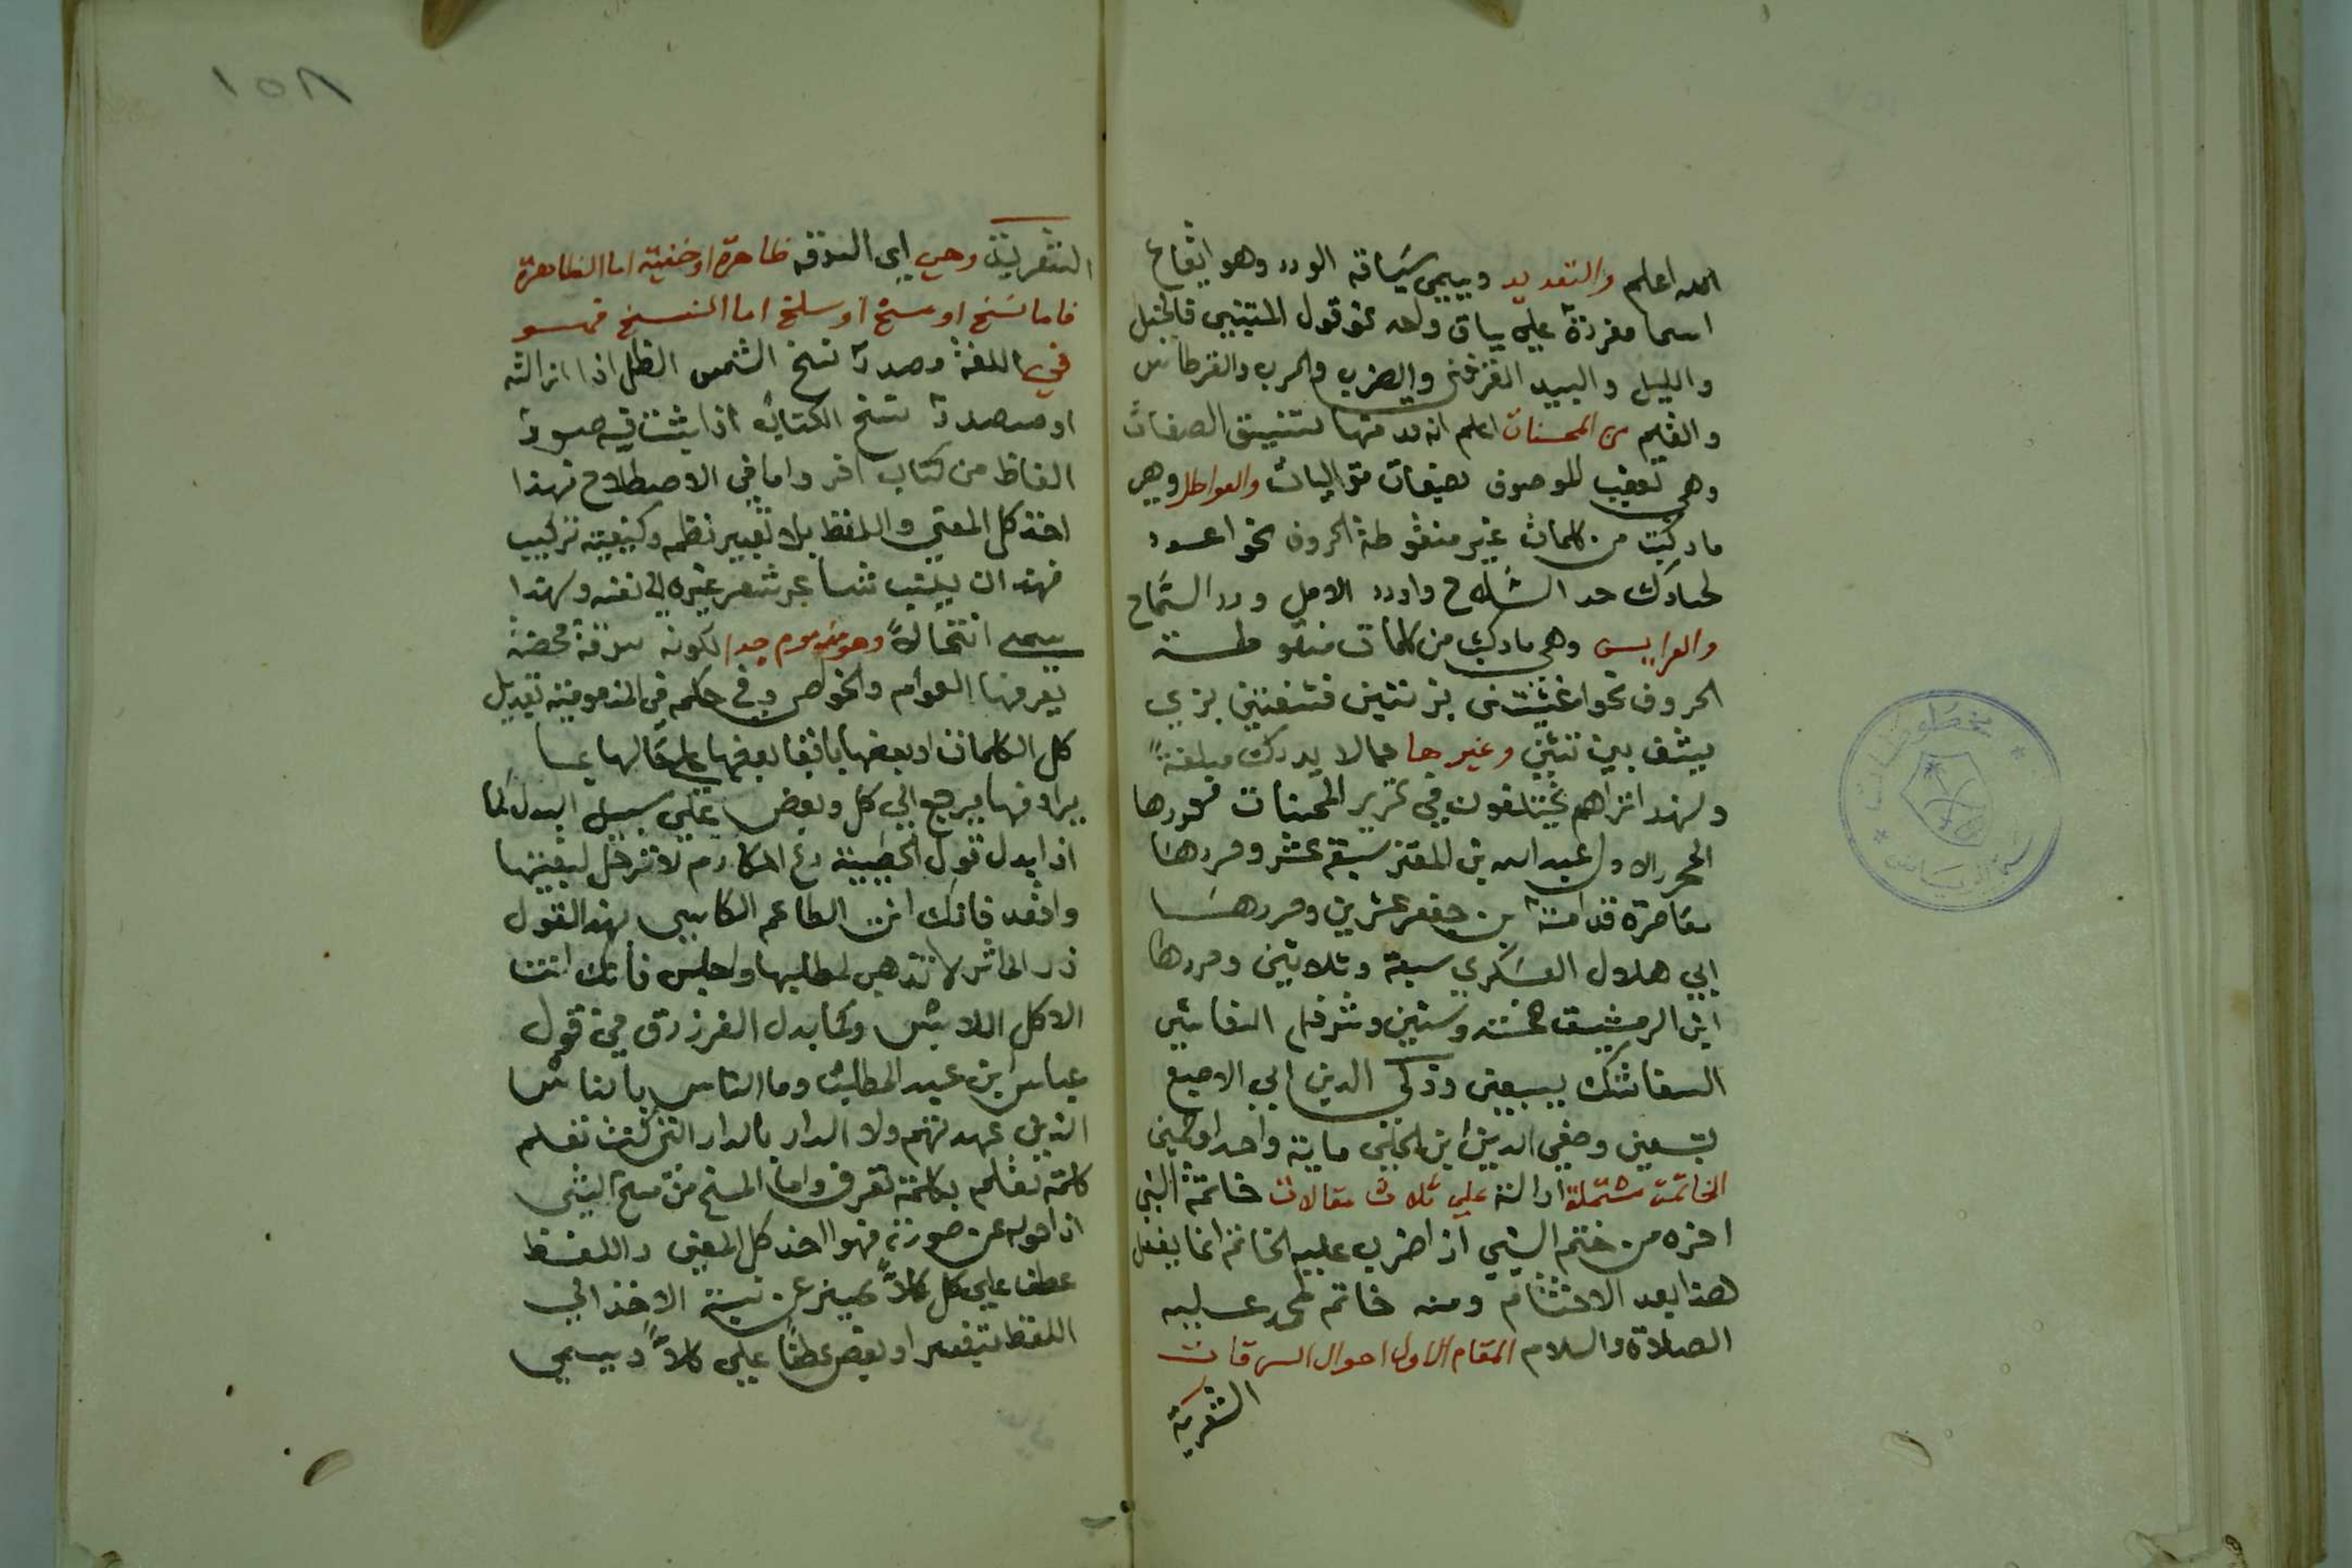 الله اعلم والتعديد ويسمى سياقة الورد وهو ايقاع
اسما مفردة على سياق واحد نحو قول المتنبي فالخيل
والليل والبيد تعرفنى والضرب والحرب والقرطاس
والقلم من المحسنات اعلم انه قد منها تنسيق الصفات
وهي تعقيب الموصوف بصفات متواليات والعواطل وهي
ما ركبت من كلمات غير منقوطة الحروف نحو اعدد
لحسادك حد السلاح واورد الامل ورد السماح
والعرايس وهي ما ركبت من كلمات منقوطة
الحروف نحو
وغيرها مما لا يدرك مبلغه
ولهذا تراهم يختلفون في تحرير المحسنات فحررها
المحرر الاول عبد الله بن المعتز سبعة عشر وحررها
معاصره قدامة بن جعفر عشرين وحررها
ابي هلال العسكري سبعة وثلاثين وحررها
ابن الرشيق خمسة وستين وشرف
بسبعين وزكي الدين ابي الاصبع
بتسعين وصفي الدين ابن الحلي ماية واحد
الخاتمة مشتملة على ثلاث مقالات خاتمة الشي
اخره من ختم الشي اذا ضرب عليه الخاتم انما يفعل
هذا بعد الاختتام ومنه خاتم محمد عليه
الصلاة والسلام المقام الاول احوال السرقات
الشعرية
١٥٨
الشعرية وهي اي السرقة ظاهرة او خفية اما الظاهرة
فاما نسخ او مسخ او سلخ اما النسخ فهو
في اللغة مصدر نسخ الشمس الظل اذا ازالته
او مصدر نسخ الكتاب اذا ثبت فيه صور
الفاظ من كتاب اخر واما في الاصطلاح فهذا
اخذ كل المعنى واللفظ بلا تغيير نظم وكيفية تركيب
فهذا ان ينتسب شعر غيره الى نفسه ولهذا
يسمى انتحالا وهو مذموم جدا لكونه سرقة محضة
يعرفها العوام والخواص وفي حكمه في المذمومية تبديل
كل الكلمات او بعضها بابقا بعضها على حالها بما
يرادفها يرجع الى كل وبعض على سبيل البدل كما
اذا بدل قول الحطيئة دع المكارم لا ترحل لبغيتها
واقعد فانك انت الطاعم الكاسي بهذا القول
ذر الماثر لا تذهب لمطلبها واجلس فانك انت
الاكل اللابس وكما بدل الفرزدق في قول
عباس ابن عبد المطلب وما الناس بالناس
الذين عهدتهم ولا الدار بالدار التي كنت تعلم
كلمة تعلم بكلمة تعرف واما المسخ من مسخ الشي
اذا حوله عن صورته فهو اخذ كل المعنى واللفظ
عطفا على كل كلا تمييز عن نسبة الاخذ الى
اللفظ بتغيير او بعض عطفا على كلا ويسمى